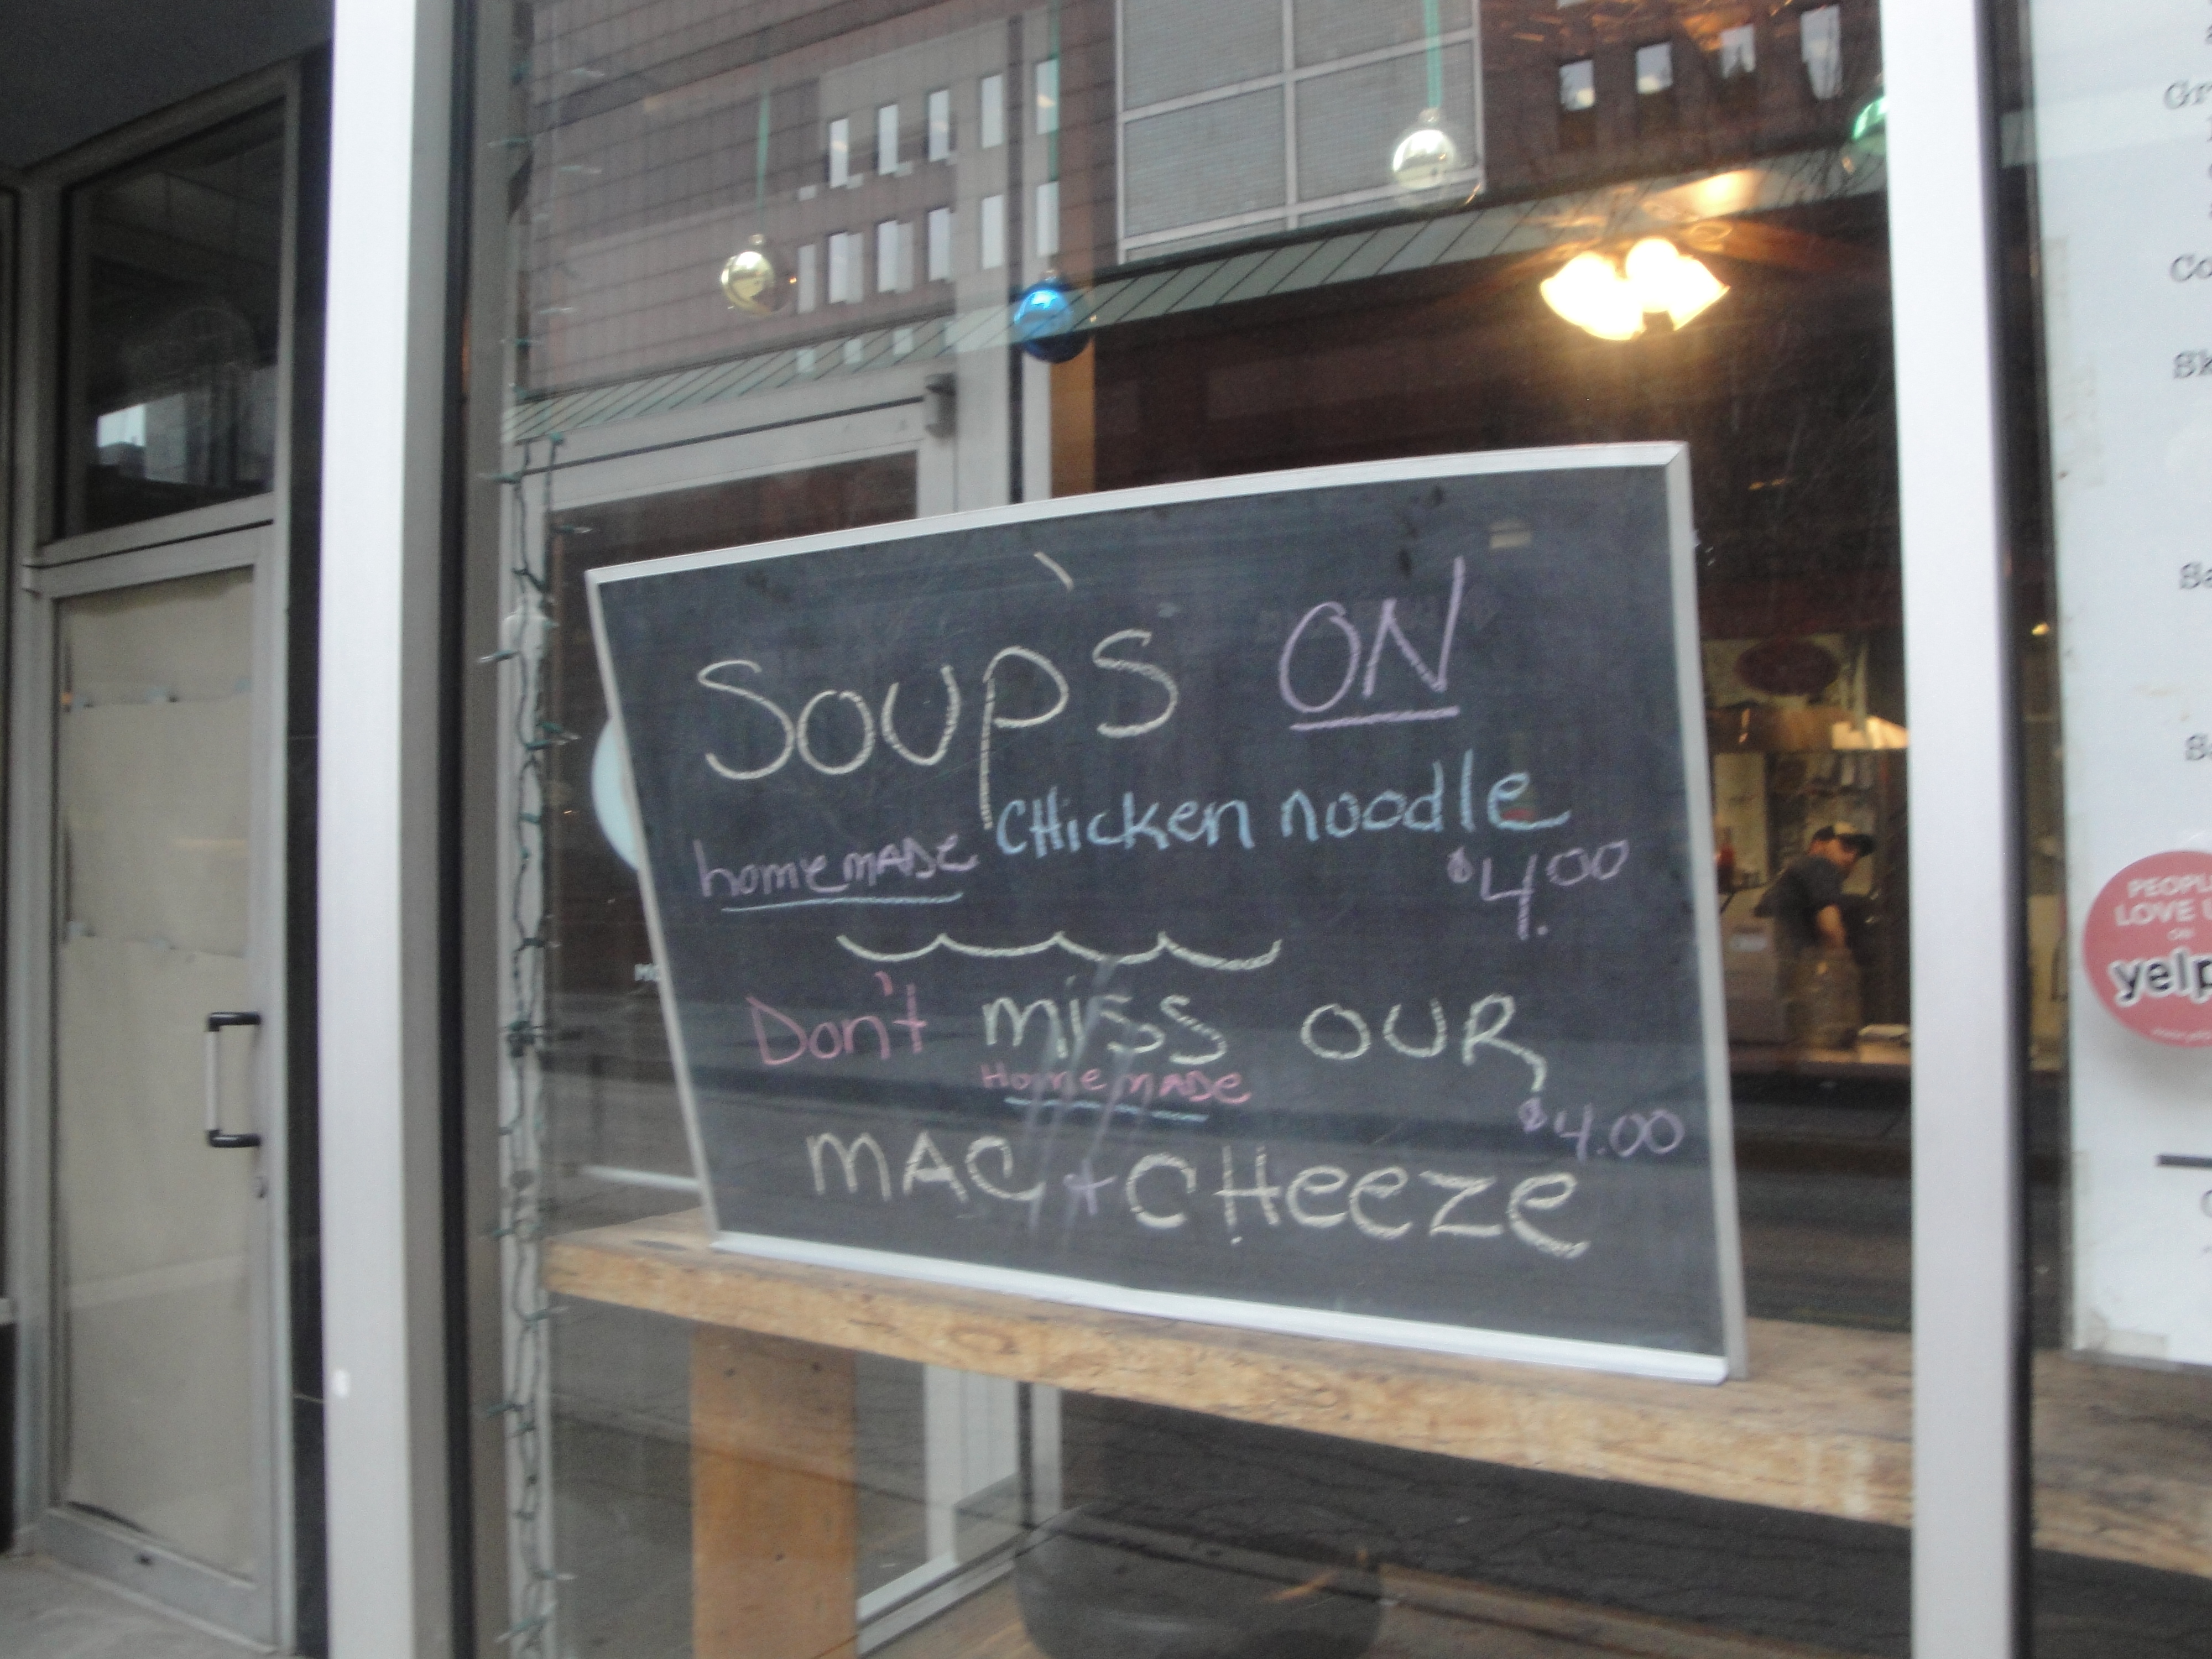 Soup's ON
homemADe CHicken noodle
$4.00
Don't miss OUR
HomemADe
$4.00
MAC + CHeeze
PEOPL
LOVE
ON
yelp
Gr
Co
Sk
Se